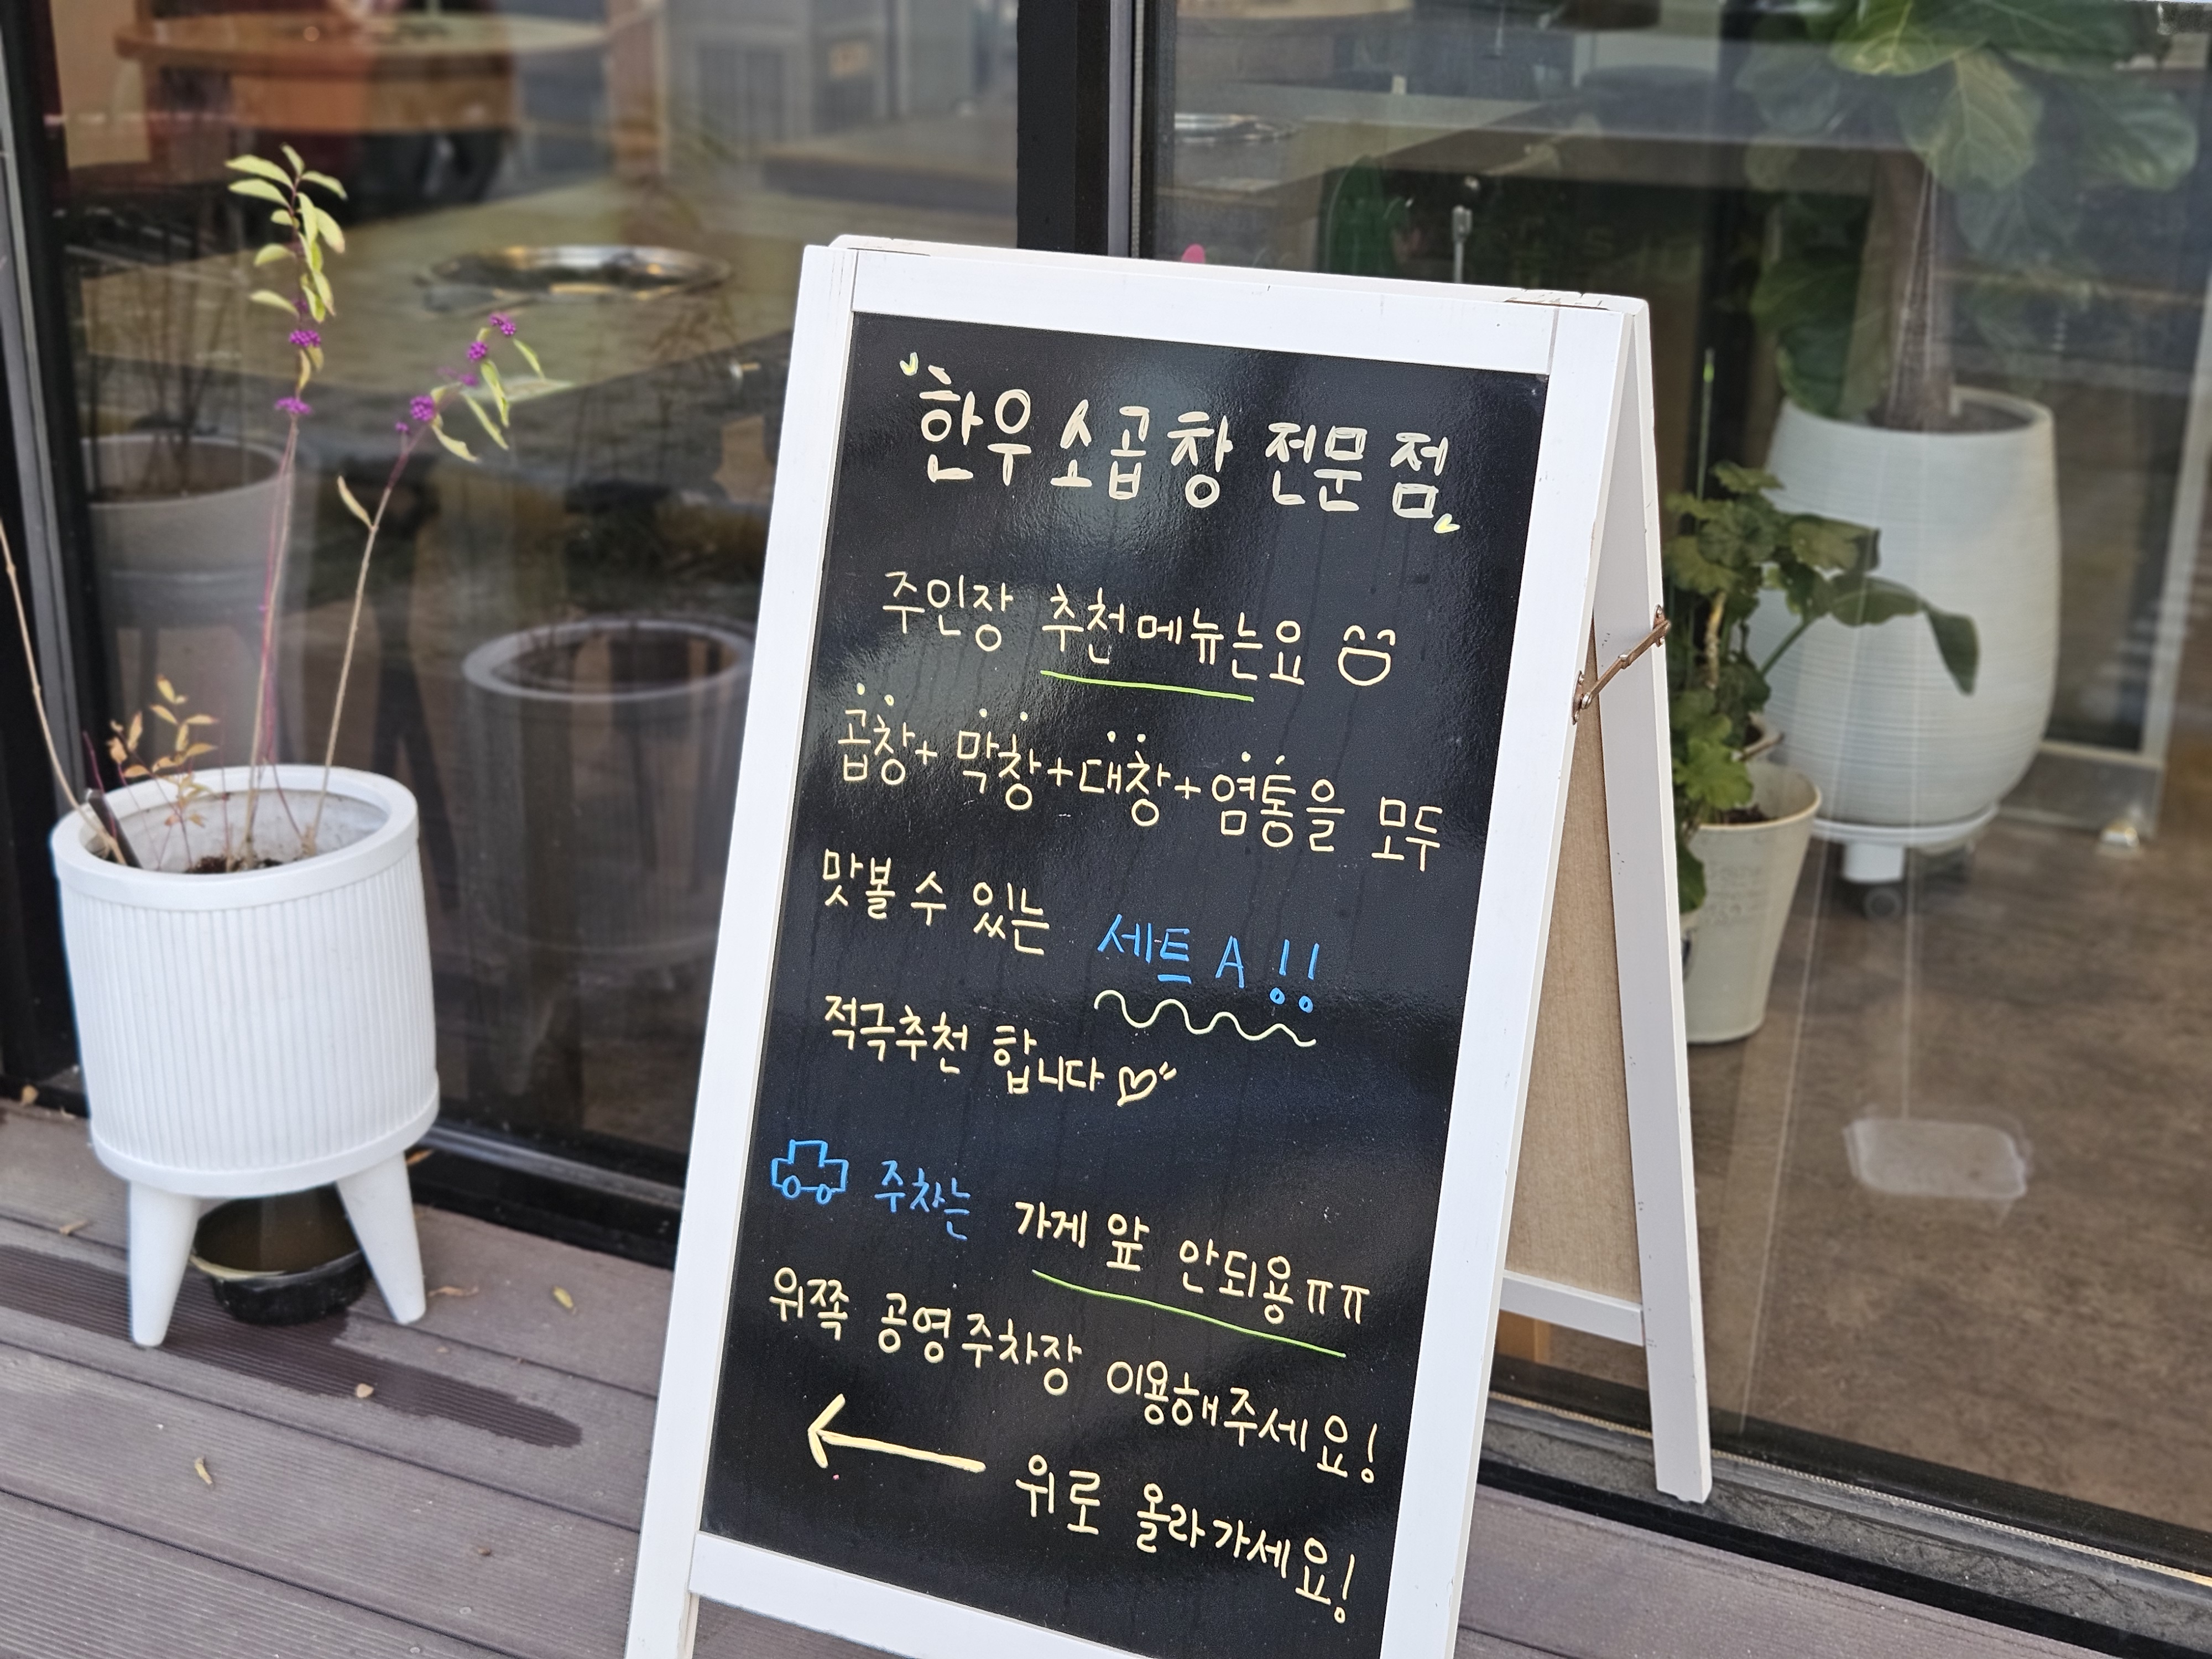 한우 소곱창 전문점
주인장 추천메뉴는요
곱창+막창+대창+염통을 모두
맛볼 수 있는 세트 A !!
적극추천 합니다
주차는 가게 앞 안되용ㅠㅠ
위쪽 공영주차장 이용해주세요!
← 위로 올라가세요!